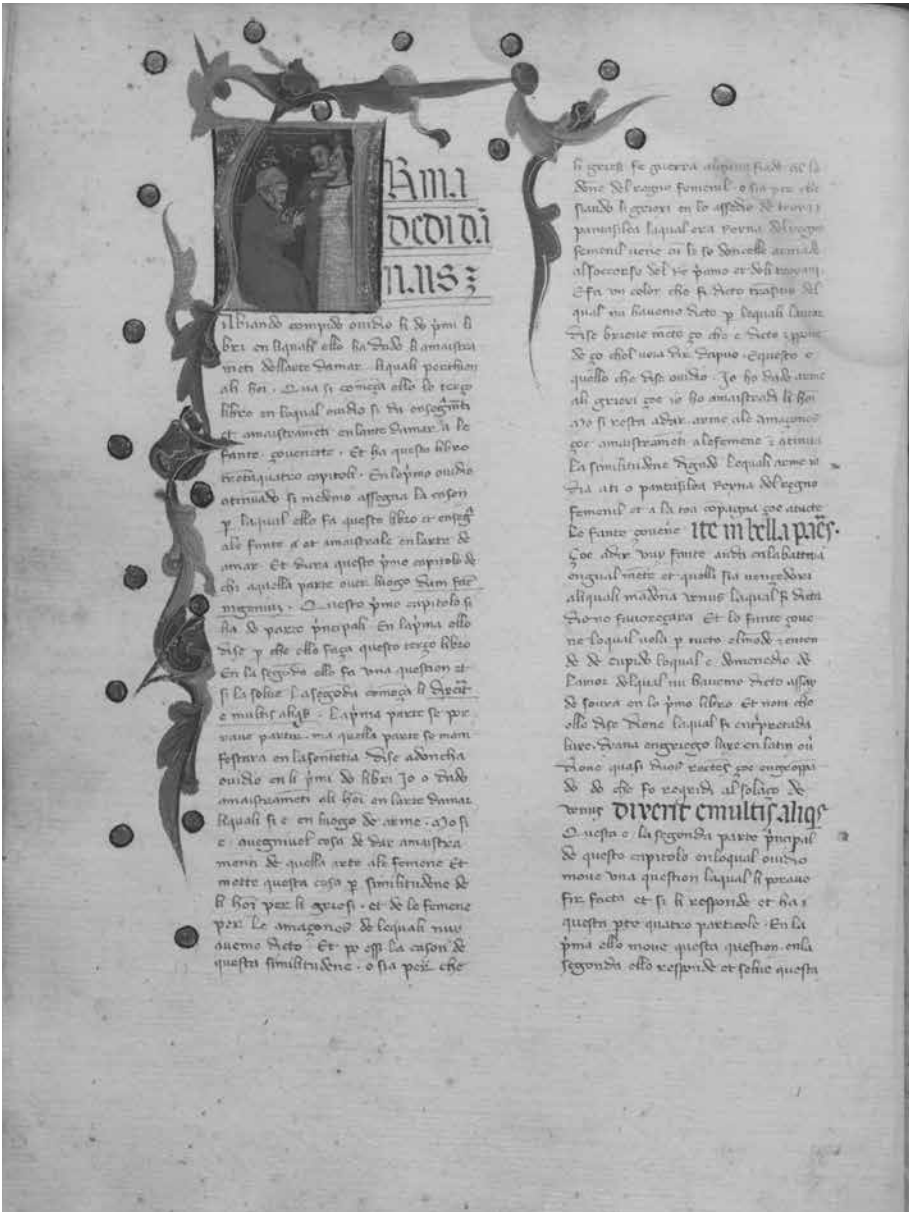 ARMA
DEDI DA
NAIS
Abiando compido ovidio li do p̃mi li
bri en liquali ello ha dado li amaistra
meti dellarte damar liquali perthien
ali hoi. Qua si comẽça ello lo terço
libro en loqual ovidio si da
et amaistrameti en larte damar a le
fante çovenette. Et ha questo libro
trentaquatro capitoli. En lo p̃mo ovidio
si medemo assegna la cason
p̱ laqual ello fa questo libro et
ale fante et amaistrale en larte de
amar. Et dura questo p̃mo capitolo de
chi aquella parte over luogo dum
ingeniũ. Questo p̃mo capitolo si
ha do parte p̃ncipali. En la p̃ma ello
dise p̱ che ello faça questo terço libro
En la segõda ello fa una question et
si la solve. La segõda comẽça li dixerit
e multis aliqs. La p̃ma parte se por
rave partir ma quella parte se mani
festara en la sentẽtia. Dise adoncha
ovidio en li p̃mi do libri Jo o dado
amaistrameti ali hoi en larte damar
liquali si e en luogo de arme. Mo si
e cosa de dar amaistra
menti de quella arte ale femene Et
mette questa cosa p̱ similitudene de
li hoi per li griesi. et de le femene
per le amaçones de lequali nuy
avemo dicto. Et po essr la cason de
questa similitudene. o sia per che
li griesi fe guerra alguna fiada cõ le
done del regno femenil. o sia per che
siando li griesi en lo assedio de troia
pantasilea laqual era reyna del regno
femenil vene cũ le so doncelle armade
al soccorso del re p̃amo et deli troyani.
E fa un color che si dicto del
qual nu havemo dicto p̱ lequali lautor
dise brieve mẽte ço che e dicto
de ço chel vora dir dapuo. Equesto e
quello che dise ovidio. Jo ho dado arme
ali griesi çoe io ho amaistradi li hoi
Mo si resta adar arme ale amaçones
çoe amaistrameti ale femene
la similitudene digando lequali arme io
dia a ti o pantasilea reyna del regno
femenil et a la toa cõpagna çoe a tucte
le fante çovene ite in bella pares.
Çoe adir vuy fante andar en la battaia
engual mẽte et quelli sia vençedori
aliquali madona venus laqual si dicta
dione favoreçara Et lo fante çove
ne loqual vola p̱ tucto el mõdo
de de cupido loqual e domenedio de
lamor delqual nu havemo dicto assay
de sovra en lo p̃mo libro Et nota che
ello dise dione laqual si
en griego en latin
dione quasi çoe
do de che fo al solaço de
venus Dixerit e multis aliqs
Questa e la segonda parte p̃ncipal
de questo capitolo en loqual ovidio
move una question laqual li porave
fir facta et si li responde et ha
questa pte quatro particole. En la
p̃ma ello move questa question. en la
segonda ello responde et solve questa